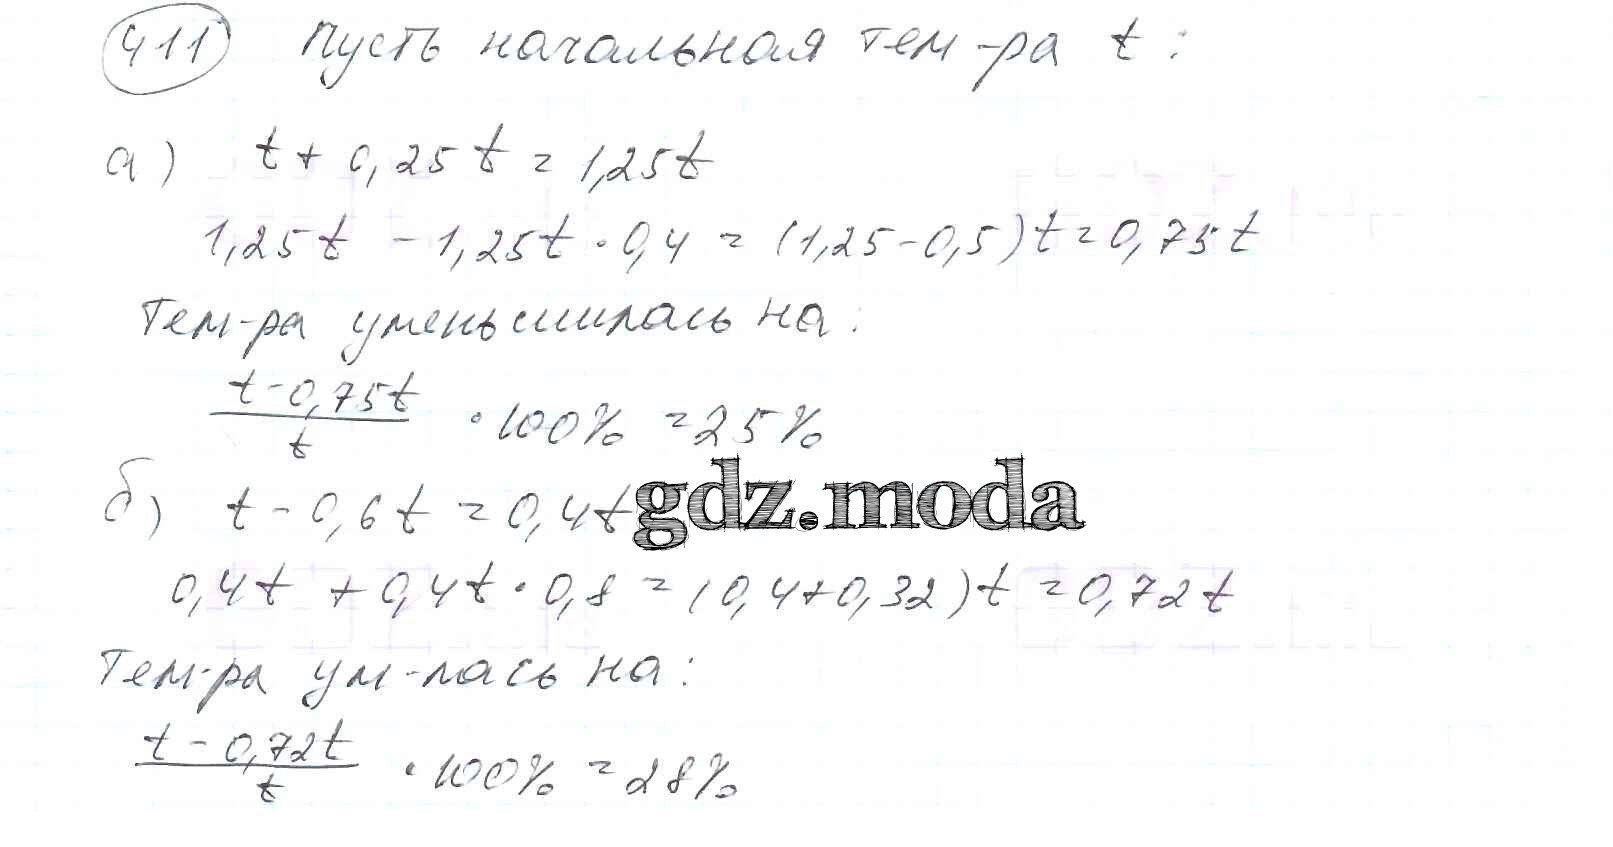 411 Пусть начальная тем-ра t:
а) t + 0,25t = 1,25t
1,25t - 1,25t · 0,4 = (1,25-0,5)t = 0,75t
Тем-ра уменьшилась на:
t - 0,75t
t
· 100% = 25%
б) t - 0,6t = 0,4t
gdz.moda
0,4t + 0,4t · 0,8 = (0,4+0,32)t = 0,72t
Тем-ра ум-лась на:
t - 0,72t
t
· 100% = 28%